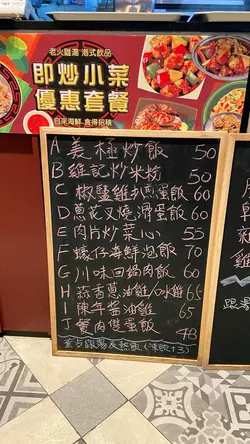 老火雞湯 港式飲品
即炒小菜
優惠套餐
自來海鮮 食得招積
A 美極炒飯 50
B 雞記炒米粉 50
C 椒鹽雞扒煎蛋飯 60
D 蔥花叉燒滑蛋飯 60
E 肉片炒菜心 55
F 蠔仔海鮮泡飯 70
G 川味回鍋肉飯 60
H 蒜香蔥油雞/冰雞 65
I 陳年醬油雞 65
J 餐肉雙蛋飯 48
跟湯